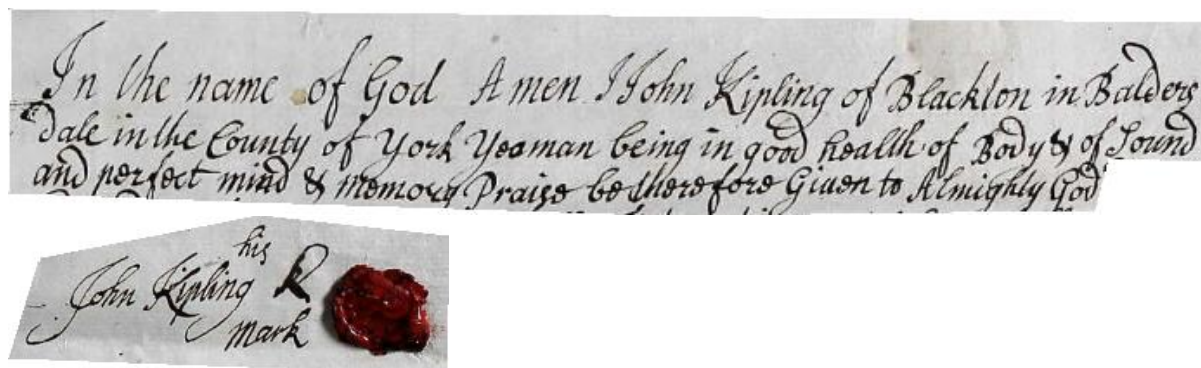 In the name of God Amen I John Kipling of Blackton in Balders
dale in the County of York Yeoman being in good health of Body & of Sound
and perfect mind & memory Praise be therefore Given to Almighty God
his
John Kipling K
mark